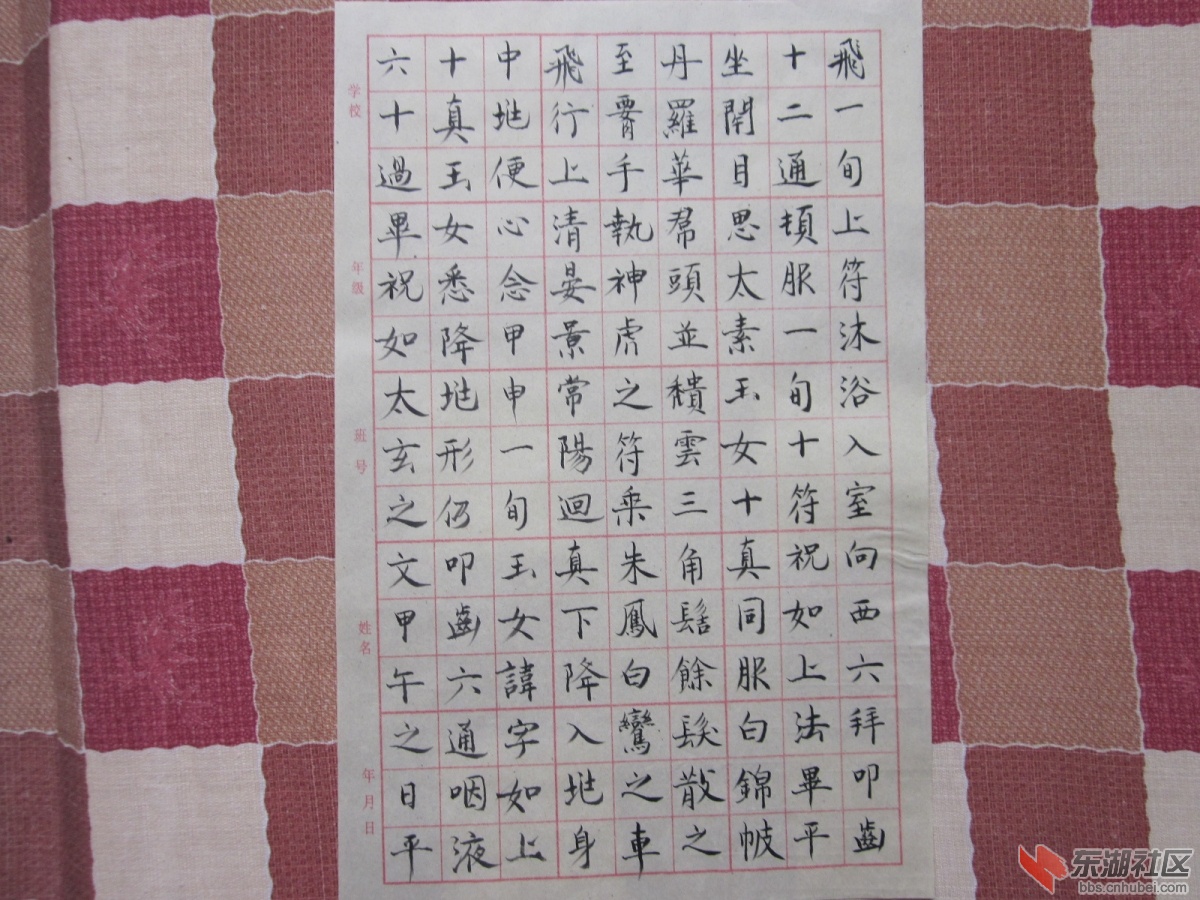 飛一旬上符沐浴入室向西六拜叩齒
十二通頓服一旬十符祝如上法畢平
坐閇目思太素玉女十真同服白錦帔
丹羅華帬頭並穨雲三角髻餘髮散之
至腰手執神虎之符乗朱鳳白鸞之車
飛行上清晏景常陽迴真下降入兆身
中兆便心念甲申一旬玉女諱字如上
十真玉女悉降兆形仍叩齒六通咽液
六十過畢祝如太玄之文甲午之日平
学校
年级
班号
姓名
年月日
东湖社区
bbs.cnhubei.com